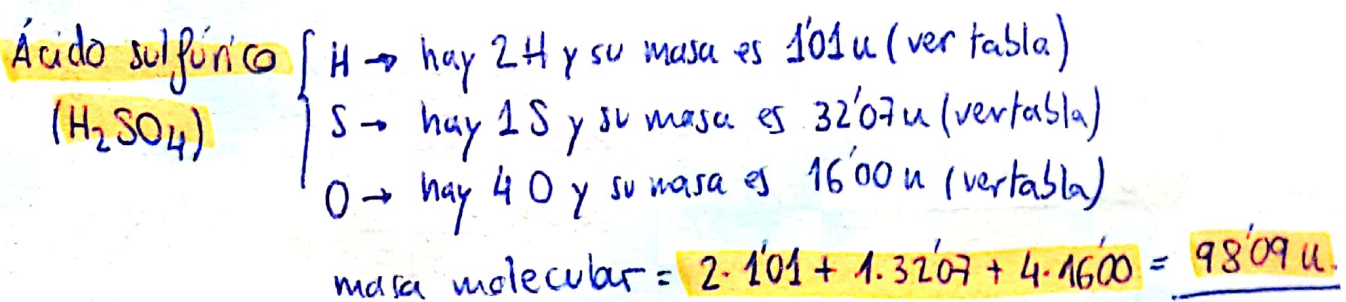 Ácido sulfúrico { H → hay 2H y su masa es 1'01 u (ver tabla)
(H₂SO₄) S → hay 1S y su masa es 32'07 u (ver tabla)
O → hay 4 O y su masa es 16'00 u (ver tabla)
masa molecular = 2·1'01 + 1·32'07 + 4·16'00 = 98'09 u.